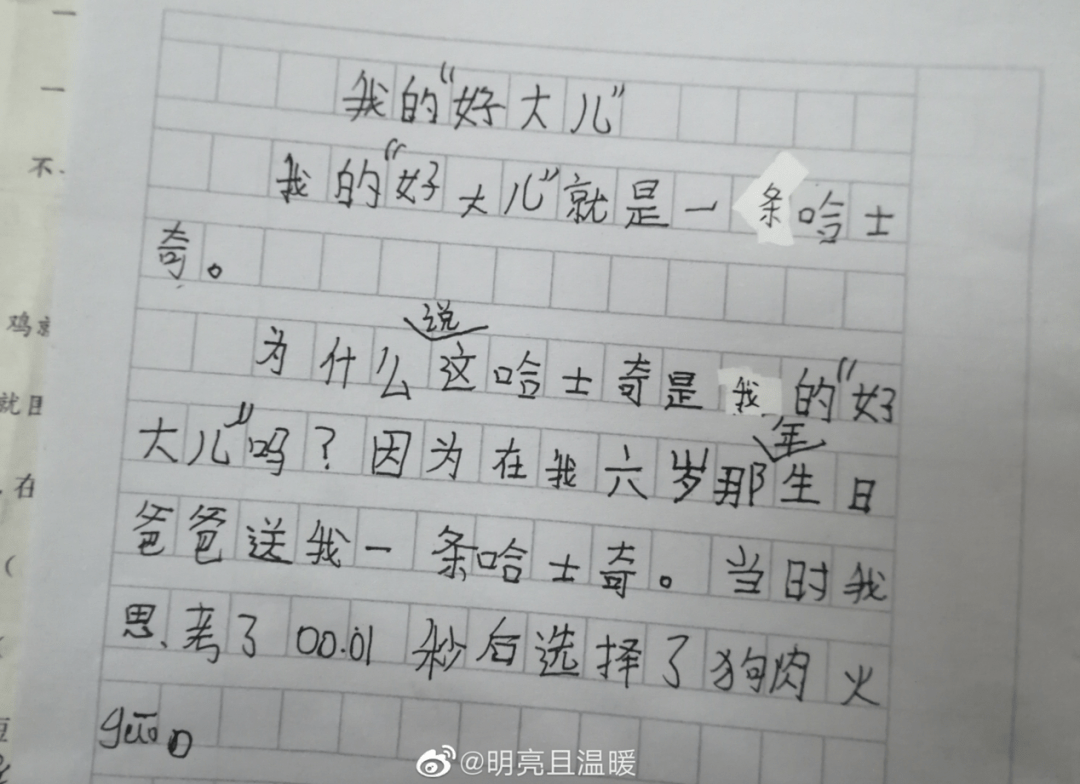 我的“好大儿”
我的“好大儿”就是一条哈士
奇。
为什么说这哈士奇是我的“好
大儿”吗？因为在我六岁那年生日
爸爸送我一条哈士奇。当时我
思考了00.01秒后选择了狗肉火
guō。
不
鸡
就
在
@明亮且温暖